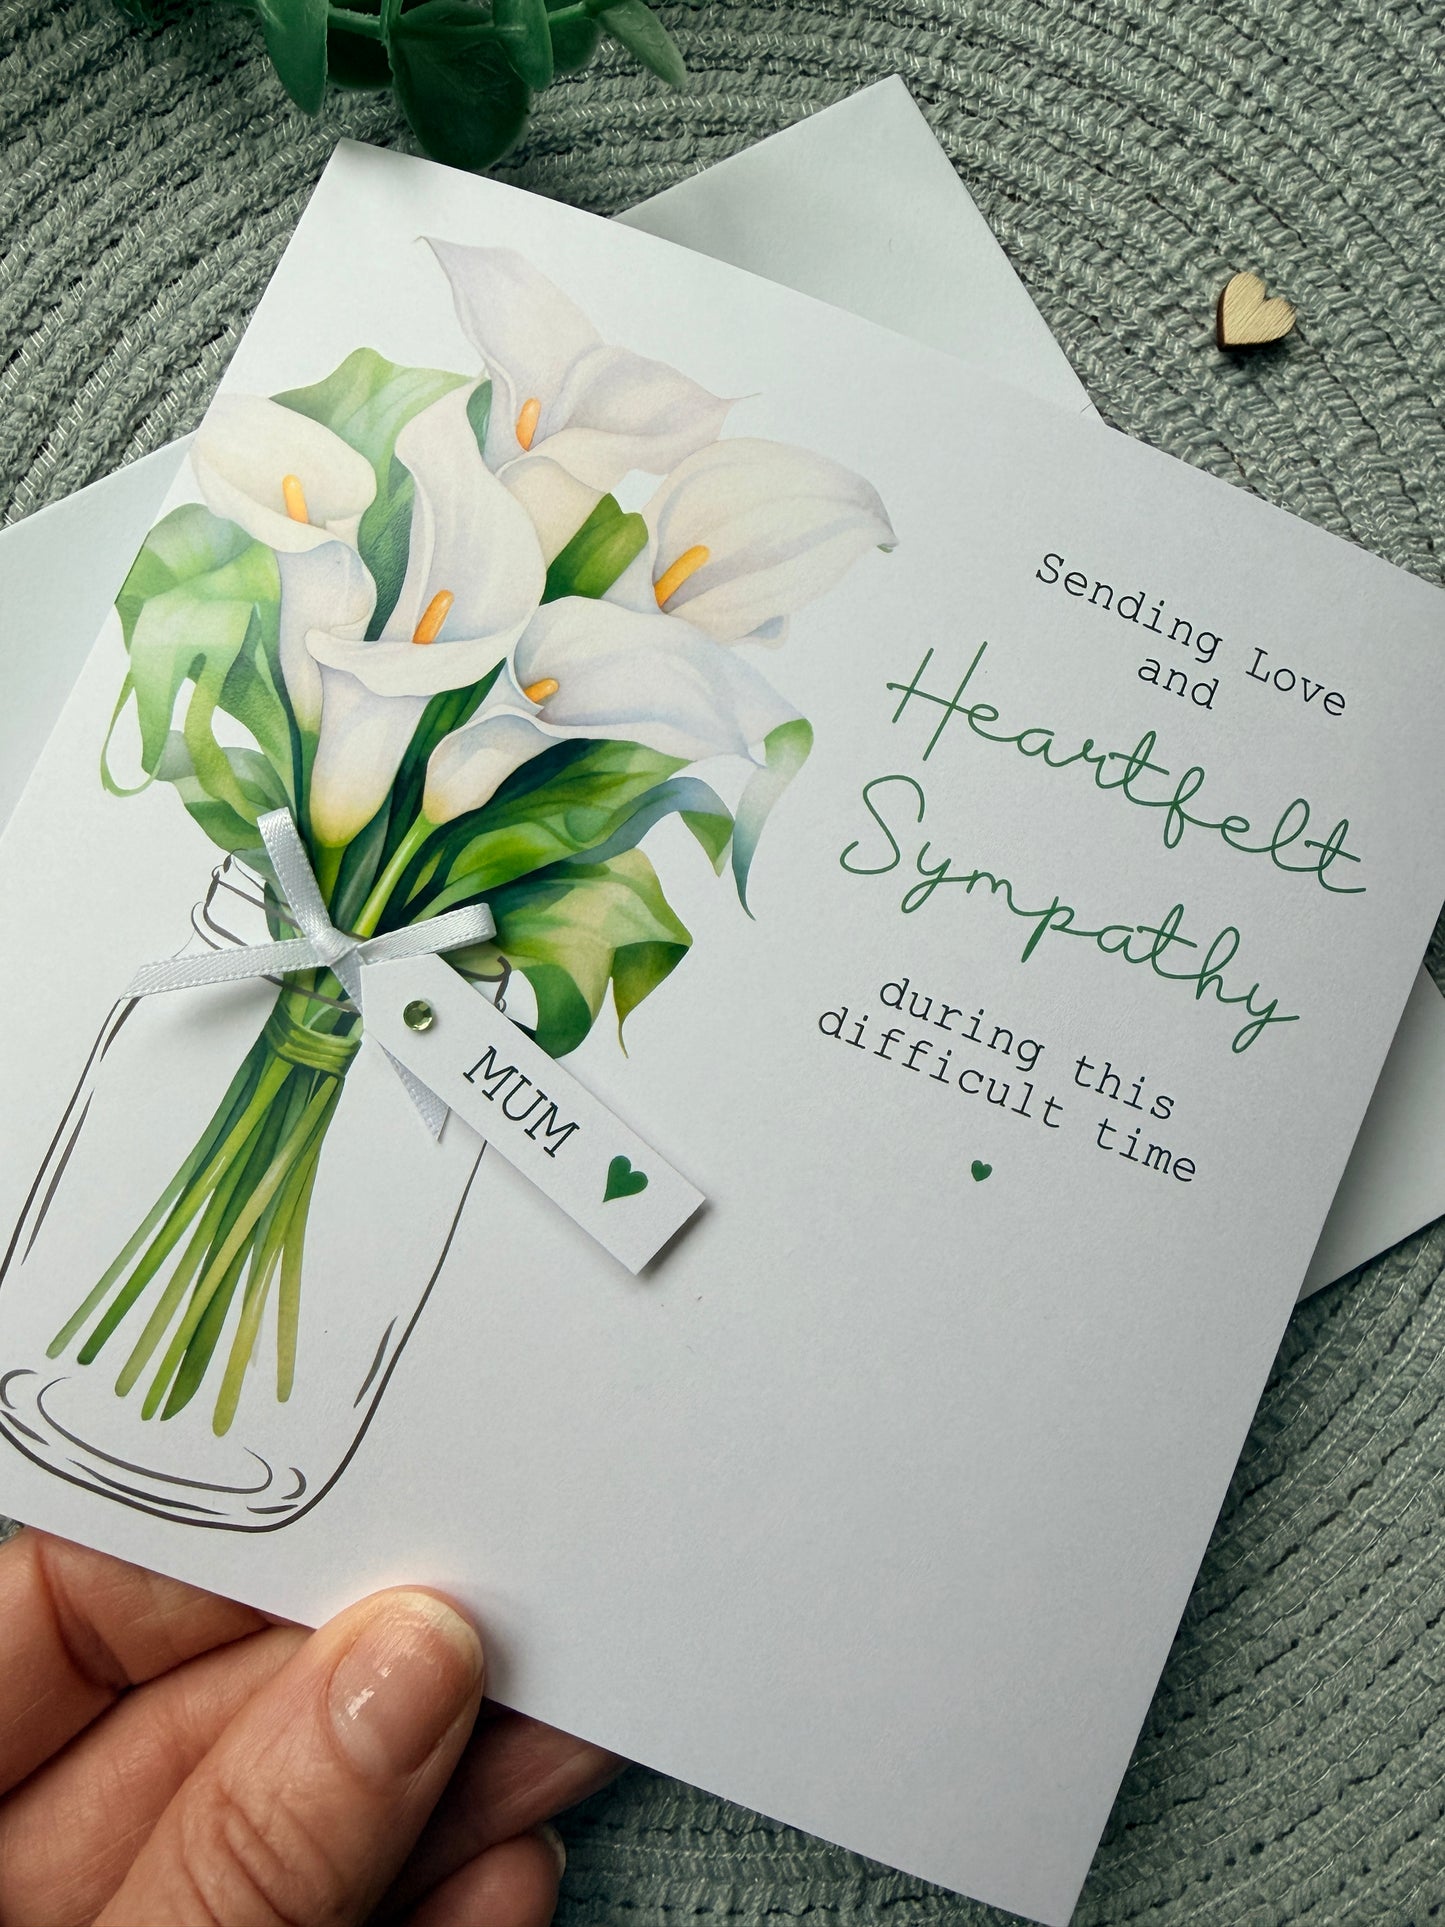 Sending Love
and
Heartfelt
Sympathy
during this
difficult time
MUM